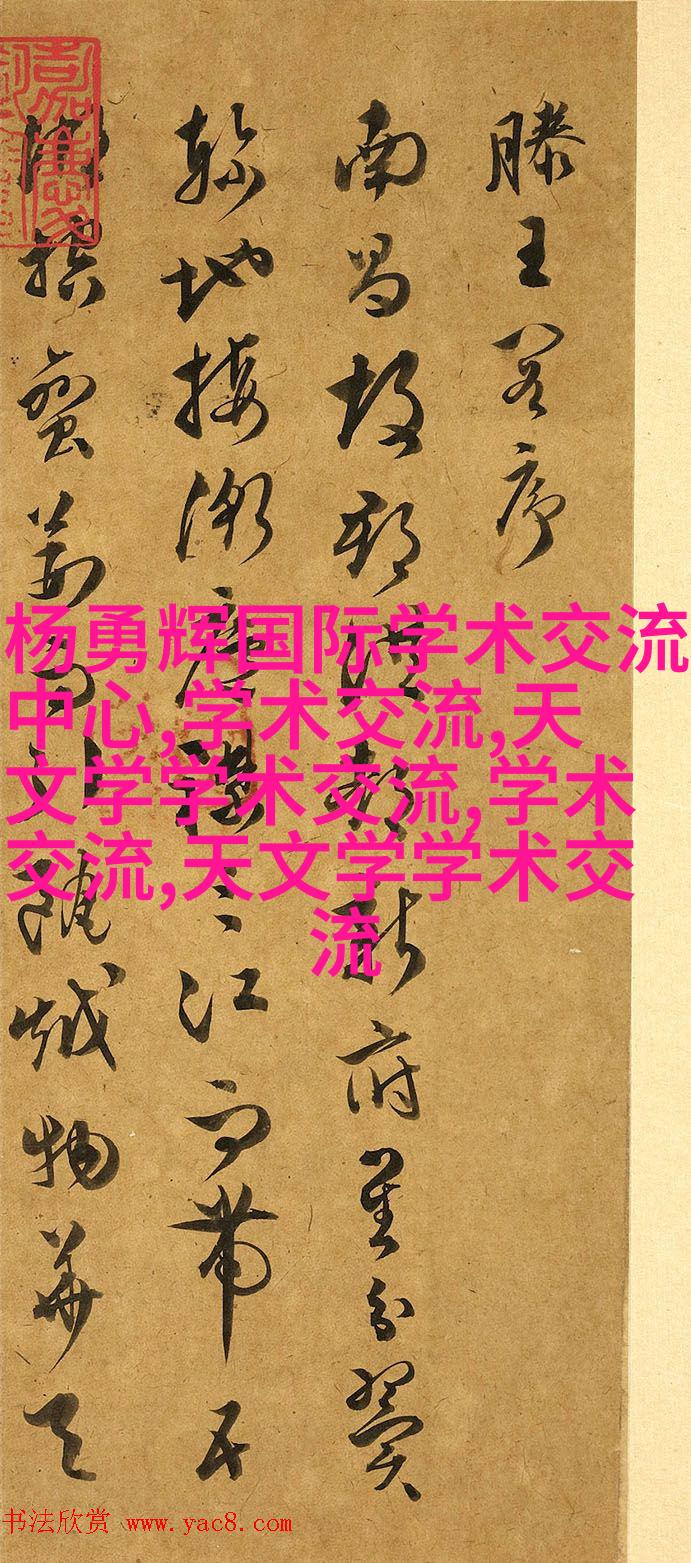 滕王閣序
南昌故郡洪都新府星分翼
軫地接衡廬襟三江而帶五
湖控蠻荊而引甌越物華天
杨勇辉国际学术交流
中心,学术交流,天
文学学术交流,学术
交流,天文学学术交
流
书法欣赏 www.yac8.com